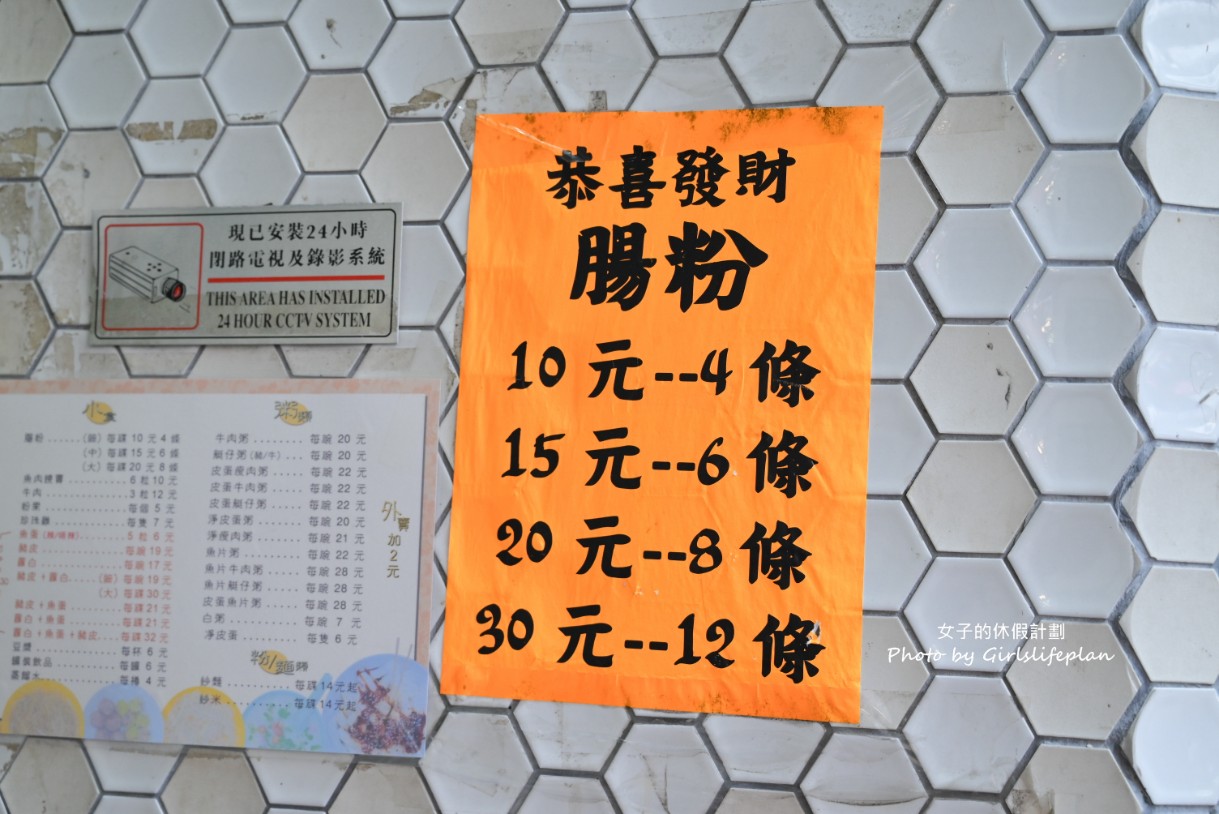 恭喜發財
腸粉
10 元--4 條
15 元--6 條
20 元--8 條
30 元--12 條
現已安裝24小時
閉路電視及錄影系統
THIS AREA HAS INSTALLED
24 HOUR CCTV SYSTEM
小食
腸粉 ......(細) 每碟 10 元 4 條
(中) 每碟 15 元 6 條
(大) 每碟 20 元 8 條
魚肉燒賣 ........ 6 粒 10 元
牛肉 ........ 3 粒 12 元
粉果 ........ 每個 5 元
珍珠雞 ........ 每隻 7 元
魚蛋 ........ 5 粒 6 元
豬皮 ........ 每碗 19 元
蘿白 ........ 每碗 17 元
豬皮+蘿白 ....(細) 每碗 19 元
(大) 每碟 30 元
豬皮+魚蛋 ........ 每碟 21 元
蘿白+魚蛋 ........ 每碟 21 元
蘿白+魚蛋+豬皮 .... 每碟 32 元
豆漿 ........ 每杯 6 元
罐裝飲品 ........ 每罐 6 元
蒸餾水 ........ 每樽 4 元
粥類
牛肉粥 ........ 每碗 20 元
艇仔粥 (豬/牛) ... 每碗 20 元
皮蛋瘦肉粥 ..... 每碗 22 元
皮蛋牛肉粥 ..... 每碗 22 元
皮蛋艇仔粥 ..... 每碗 22 元
淨皮蛋粥 ....... 每碗 20 元
淨瘦肉粥 ....... 每碗 21 元
魚片粥 ........ 每碗 22 元
魚片牛肉粥 ..... 每碗 28 元
魚片艇仔粥 ..... 每碗 28 元
皮蛋魚片粥 ..... 每碗 28 元
白粥 .......... 每碗 7 元
淨皮蛋 ........ 每隻 6 元
外賣加2元
粉/麵類
炒麵 .......... 每碟14元起
炒米 .......... 每碟14元起
女子的休假計劃
Photo by Girlslifeplan